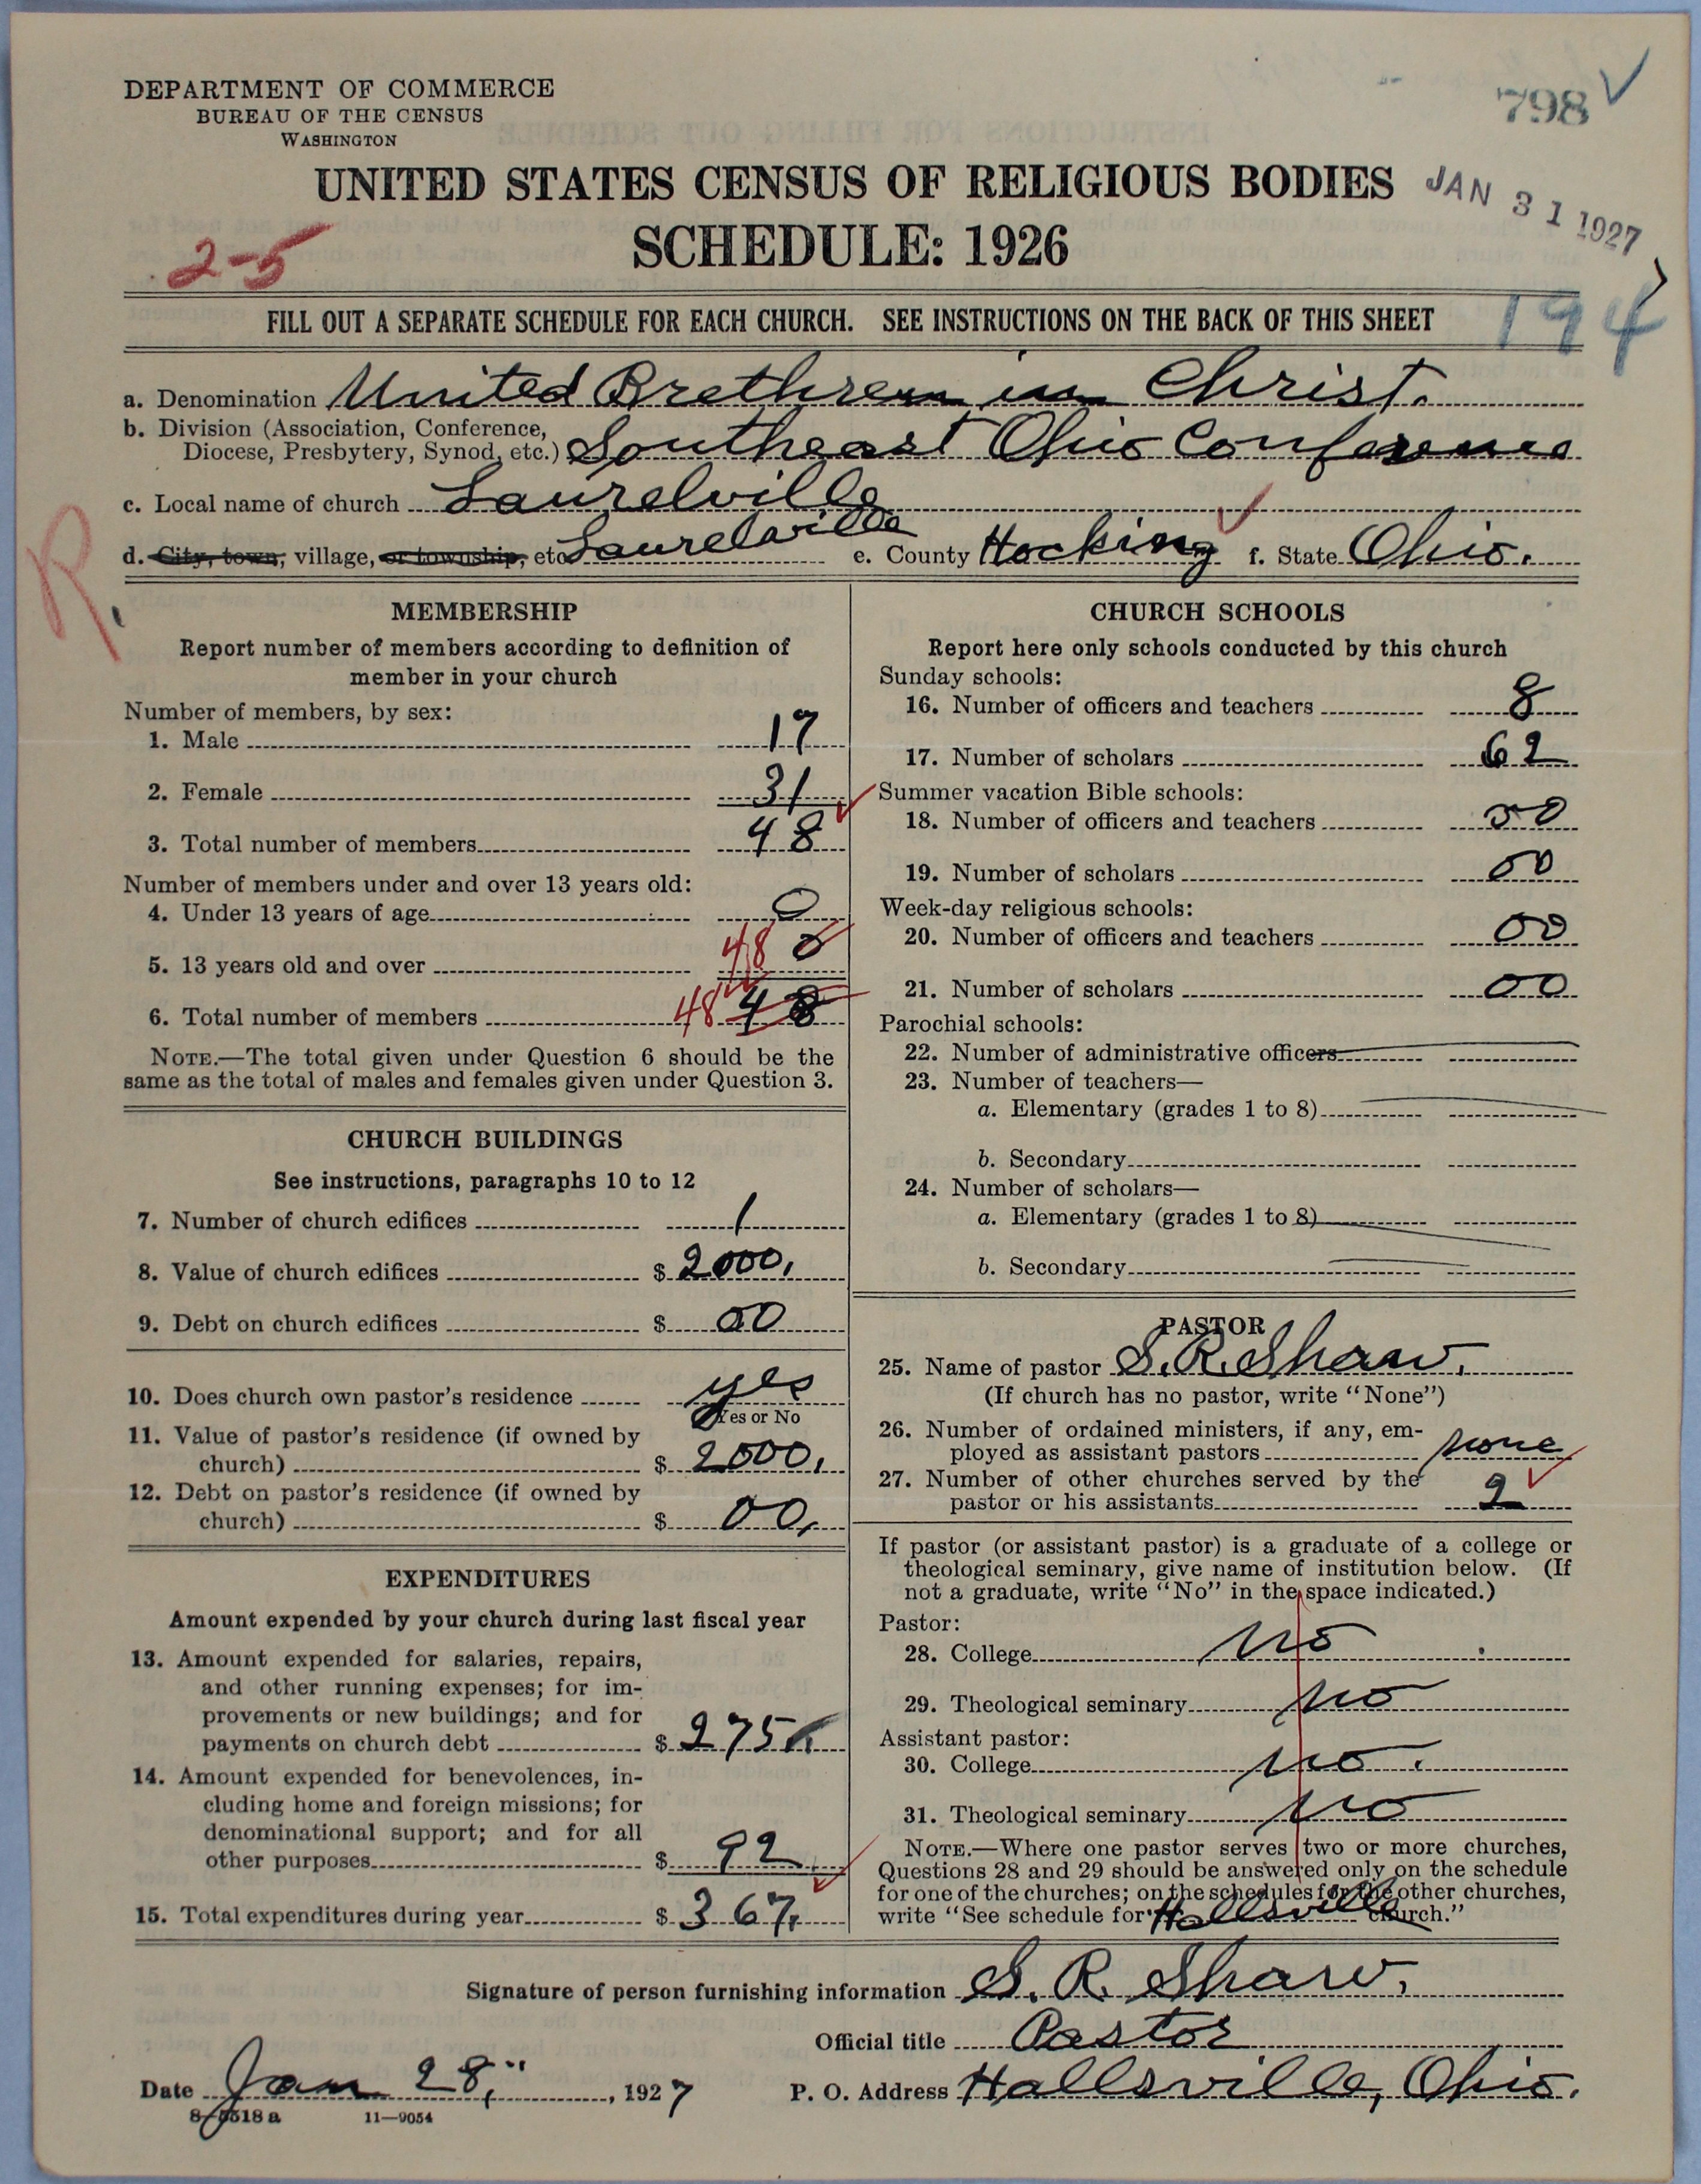 DEPARTMENT OF COMMERCE
BUREAU OF THE CENSUS
WASHINGTON
798
UNITED STATES CENSUS OF RELIGIOUS BODIES
JAN 31 1927
SCHEDULE: 1926
2-5
194
FILL OUT A SEPARATE SCHEDULE FOR EACH CHURCH. SEE INSTRUCTIONS ON THE BACK OF THIS SHEET
a. Denomination United Brethren in Christ.
b. Division (Association, Conference,
Diocese, Presbytery, Synod, etc.) Southeast Ohio Conference
c. Local name of church Laurelville
R.
d. City, town, village, or township, etc Laurelville e. County Hocking f. State Ohio.
MEMBERSHIP
Report number of members according to definition of
member in your church
Number of members, by sex:
1. Male 17
2. Female 31
3. Total number of members 48
Number of members under and over 13 years old:
4. Under 13 years of age 0
5. 13 years old and over 48 0
6. Total number of members 48 48
NOTE.—The total given under Question 6 should be the
same as the total of males and females given under Question 3.
CHURCH BUILDINGS
See instructions, paragraphs 10 to 12
7. Number of church edifices 1
8. Value of church edifices $ 2000.
9. Debt on church edifices $ 00
10. Does church own pastor's residence yes
Yes or No
11. Value of pastor's residence (if owned by
church) $ 2000.
12. Debt on pastor's residence (if owned by
church) $ 00.
EXPENDITURES
Amount expended by your church during last fiscal year
13. Amount expended for salaries, repairs,
and other running expenses; for im-
provements or new buildings; and for
payments on church debt $ 275.
14. Amount expended for benevolences, in-
cluding home and foreign missions; for
denominational support; and for all
other purposes $ 92
15. Total expenditures during year $ 367.
CHURCH SCHOOLS
Report here only schools conducted by this church
Sunday schools:
16. Number of officers and teachers 8
17. Number of scholars 62
Summer vacation Bible schools:
18. Number of officers and teachers 00
19. Number of scholars 00
Week-day religious schools:
20. Number of officers and teachers 00
21. Number of scholars 00
Parochial schools:
22. Number of administrative officers
23. Number of teachers—
a. Elementary (grades 1 to 8)
b. Secondary
24. Number of scholars—
a. Elementary (grades 1 to 8)
b. Secondary
PASTOR
25. Name of pastor S. R. Shaw.
(If church has no pastor, write "None")
26. Number of ordained ministers, if any, em-
ployed as assistant pastors none
27. Number of other churches served by the
pastor or his assistants 2
If pastor (or assistant pastor) is a graduate of a college or
theological seminary, give name of institution below. (If
not a graduate, write "No" in the space indicated.)
Pastor:
28. College no
29. Theological seminary no
Assistant pastor:
30. College no.
31. Theological seminary no
NOTE.—Where one pastor serves two or more churches,
Questions 28 and 29 should be answered only on the schedule
for one of the churches; on the schedules for the other churches,
write "See schedule for Hallsville church."
Signature of person furnishing information S. R. Shaw.
Official title Pastor
Date Jan 28, 1927 P. O. Address Hallsville, Ohio.
8-5518 a 11—9054